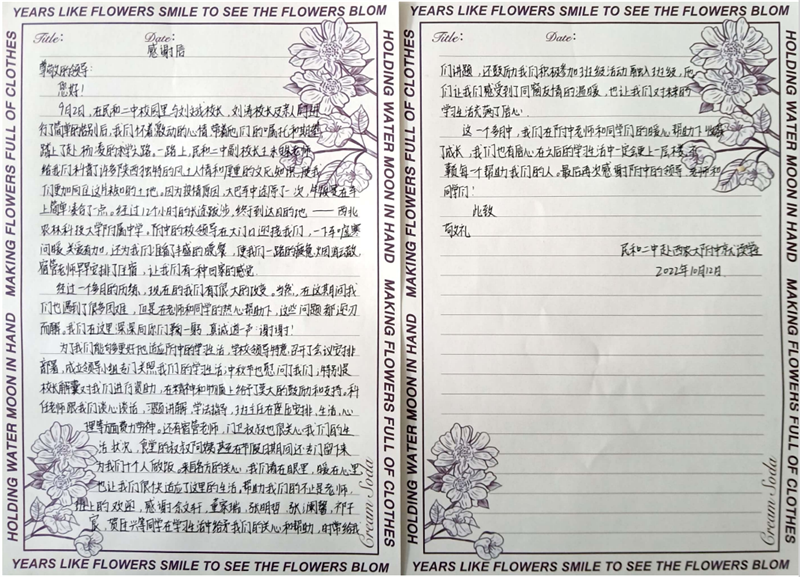 YEARS LIKE FLOWERS SMILE TO SEE THE FLOWERS BLOM
MAKING FLOWERS FULL OF CLOTHES
HOLDING WATER MOON IN HAND
Title: Date:
感谢信
尊敬的领导:
您好!
9月2日,在民和二中校园里与刘斌校长,刘涛校长及家人们进
行了简单的告别后,我们怀着激动的心情,带着他们的嘱托和期望
踏上了赴杨凌的求学之路。一路上,民和二中副校长王永明老师
给我们科普了许多陕西独特的风土人情和厚重的文化知识,使我
们更加向往这片教知的土地,因为疫情原因,大巴车中途停了一次,午饭是在车
上简单凑合了一点。经过12个小时的长途跋涉,终于到达目的地——西北
农林科技大学附属中学。附中的校领导在大门口迎接我们,一下车嘘寒
问暖,关爱有加,还为我们准备了丰盛的晚餐,使我们一路的疲惫烟消云散,
宿管老师早早安排了住宿,让我们有一种回家的感觉。
经过一个多月的历练,现在的我们有了很大的改变。当然,在这期间我
们也遇到了很多困难,但是在老师和同学的热心帮助下,这些问题都迎刃
而解,我们在这里深深向你们鞠一躬,真诚道一声:谢谢!
为了我们能够更好地适应附中的学习生活,学校领导特意召开了会议安排
部署,成立领导小组专门关照我们的学习生活;中秋节也慰问了我们;特别是
校长解囊对我们进行资助,在精神和物质上给予莫大的鼓励和支持。科
任老师跟我们谈心谈话,习题讲解,学法指导,班主任在座位安排,生活,心
理等方面费力劳神。还有宿管老师,门卫叔叔也很关心我们的生
活状况,食堂的叔叔阿姨甚至在节假日期间还专门留下来
为我们十个人做饭。来自各方的关心,我们看在眼里,暖在心里
也让我们很快适应了这里的生活。帮助我们的不止是老师,
班上的
欢迎,感谢
同学在学习生活中给予我们的关心和帮助,时常给我
Cream Soda
YEARS LIKE FLOWERS SMILE TO SEE THE FLOWERS BLOM
YEARS LIKE FLOWERS SMILE TO SEE THE FLOWERS BLOM
HOLDING WATER MOON IN HAND
MAKING FLOWERS FULL OF CLOTHES
Title: Date:
们讲题,还鼓励我们积极参加班级活动融入班级,他
们让我们感受到了同窗友情的温暖,也让我们对未来的
学习生活充满了信心。
这一个多月中,我们在附中老师和同学们的暖心帮助下收获
了成长,我们也有信心在之后的学习生活中一定会更上一层楼,不
负每一个帮助我们的人。最后再次感谢附中的领导、老师和
同学们!
此致
敬礼
民和二中赴西农大附中就读学生
2022年10月12日
Cream Soda
YEARS LIKE FLOWERS SMILE TO SEE THE FLOWERS BLOM